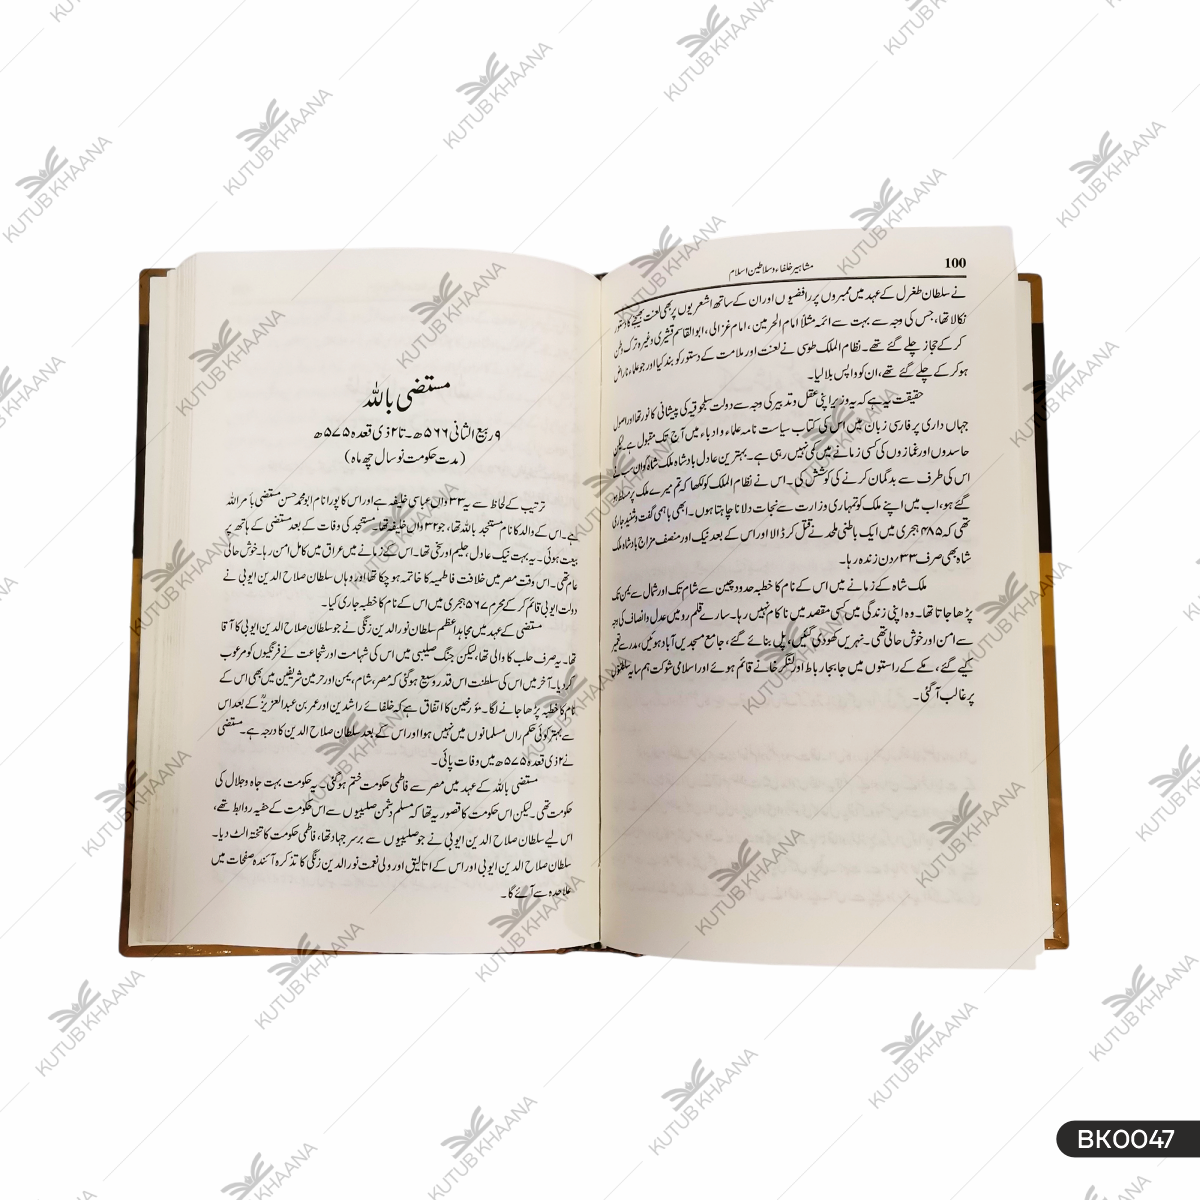 100
مشاہیر خلفاء و سلاطین اسلام
نے سلطان طغرل کے عہد میں ممبروں پر رافضیوں اور ان کے ساتھ اشعریوں پر بھی لعنت بھیجنے کا دستور
نکالا تھا، جس کی وجہ سے بہت سے ائمہ مثلاً امام الحرمین، امام غزالی، ابوالقاسم قشیری وغیرہ ترک وطن
کر کے حجاز چلے گئے تھے۔ نظام الملک طوسی نے لعنت اور ملامت کے دستور کو بند کیا اور جو علماء ناراض
ہو کر کے چلے گئے تھے، ان کو واپس بلا لیا۔
حقیقت یہ ہے کہ یہ وزیر اپنی عقل و تدبیر کی وجہ سے دولت سلجوقیہ کی پیشانی کا نور تھا اور اصول
جہاں داری پر فارسی زبان میں اس کی کتاب سیاست نامہ علماء و ادباء میں آج تک مقبول ہے۔ لیکن
حاسدوں اور غمازوں کی کسی زمانے میں کمی نہیں رہی ہے۔ بہترین عادل بادشاہ ملک شاہ کو ان سب نے
اس کی طرف سے بدگمان کرنے کی کوشش کی۔ اس نے نظام الملک کو لکھا کہ تم میرے ملک پر مسلط ہو
گئے ہو، اب میں اپنے ملک کو تمہاری وزارت سے نجات دلانا چاہتا ہوں۔ ابھی باہمی گفت و شنید جاری
تھی کہ ۴۸۵ ہجری میں ایک باطنی ملحد نے قتل کر ڈالا اور اس کے بعد نیک اور منصف مزاج بادشاہ ملک
شاہ بھی صرف ۳۳ دن زندہ رہا۔
ملک شاہ کے زمانے میں اس کے نام کا خطبہ حدود چین سے شام تک اور شمال سے یمن تک
پڑھا جاتا تھا۔ وہ اپنی زندگی میں کسی مقصد میں ناکام نہیں رہا۔ سارے قلمرو میں عدل و انصاف کی وجہ
سے امن اور خوش حالی تھی۔ نہریں کھودی گئیں، پل بنائے گئے، جامع مسجدیں آباد ہوئیں، مدرسے تعمیر
کیے گئے، مکے کے راستوں میں جا بجا رباط اور لنگر خانے قائم ہوئے اور اسلامی شوکت ہم سایہ سلطنتوں
پر غالب آگئی۔
مستضی باللہ
۹ ربیع الثانی ۵۶۶ھ۔ تا ۲ ذی قعدہ ۵۷۵ھ
(مدت حکومت نو سال چھ ماہ)
ترتیب کے لحاظ سے یہ ۳۳ واں عباسی خلیفہ ہے اور اس کا پورا نام ابو محمد حسن مستضی بأمر اللہ
ہے۔ اس کے والد کا نام مستنجد باللہ تھا، جو ۳۲ واں خلیفہ تھا۔ مستنجد کی وفات کے بعد مستضی کے ہاتھ پر
بیعت ہوئی۔ یہ بہت نیک عادل، حلیم اور سخی تھا۔ اس کے زمانے میں عراق میں کامل امن رہا۔ خوش حالی
عام تھی۔ اس وقت مصر میں خلافت فاطمیہ کا خاتمہ ہو چکا تھا اور وہاں سلطان صلاح الدین ایوبی نے
دولت ایوبی قائم کر کے محرم ۵۶۷ ہجری میں اس کے نام کا خطبہ جاری کیا۔
مستضی کے عہد میں مجاہد اعظم سلطان نور الدین زنگی نے جو سلطان صلاح الدین ایوبی کا آقا
تھا۔ یہ صرف حلب کا والی تھا، لیکن جنگ صلیبی میں اس کی شہامت اور شجاعت نے فرنگیوں کو مرعوب
کر دیا۔ آخر میں اس کی سلطنت اس قدر وسیع ہو گئی کہ مصر، شام، یمن اور حرمین شریفین میں بھی اس کے
نام کا خطبہ پڑھا جانے لگا۔ مؤرخین کا اتفاق ہے کہ خلفائے راشدین اور عمر بن عبدالعزیزؒ کے بعد اس
سے بہتر کوئی حکم راں مسلمانوں میں نہیں ہوا اور اس کے بعد سلطان صلاح الدین کا درجہ ہے۔ مستضی
نے ۲ ذی قعدہ ۵۷۵ھ میں وفات پائی۔
مستضی باللہ کے عہد میں مصر سے فاطمی حکومت ختم ہو گئی۔ یہ حکومت بہت جاہ و جلال کی
حکومت تھی۔ لیکن اس حکومت کا قصور یہ تھا کہ مسلم دشمن صلیبیوں سے اس حکومت کے خفیہ روابط تھے،
اس لیے سلطان صلاح الدین ایوبی نے جو صلیبیوں سے برسر جہاد تھا، فاطمی حکومت کا تختہ الٹ دیا۔
سلطان صلاح الدین ایوبی اور اس کے اتالیق اور ولی نعمت نور الدین زنگی کا تذکرہ آئندہ صفحات میں
علاحدہ سے آئے گا۔
KUTUB KHAANA
BK0047